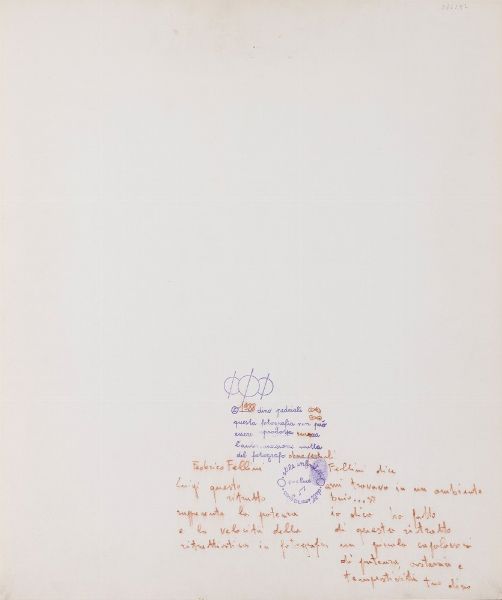 © 1988 dino pedriali
questa fotografia non può
essere prodotta senza
l'autorizzazione scritta
del fotografo dino pedriali
Federico Fellini
Luigi questo
ritratto
rappresenta la potenza
e la velocità della
ritrattistica in fotografia
Fellini dice
mi trovavo in un ambiente
buio...
io dico ho fatto
di questo ritratto
un piccolo capolavoro
di potenza, costanza e
tempestività tuo dino